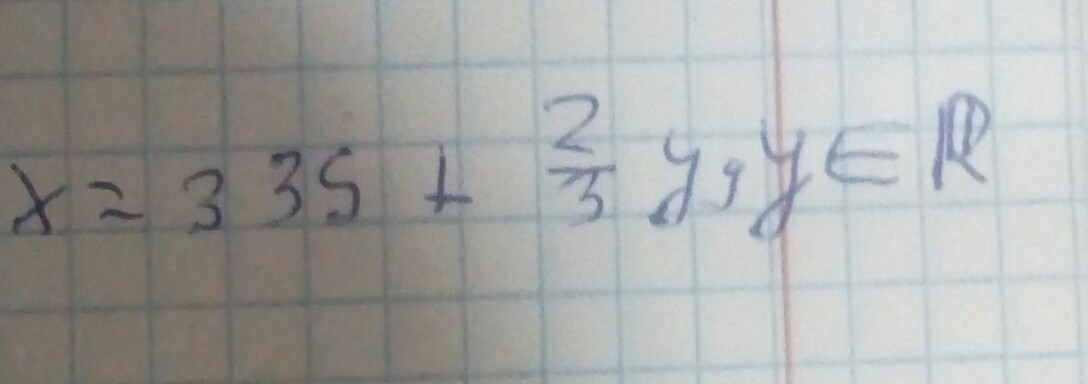 x = 335 + \frac{2}{3} y, y ∈ ℝ